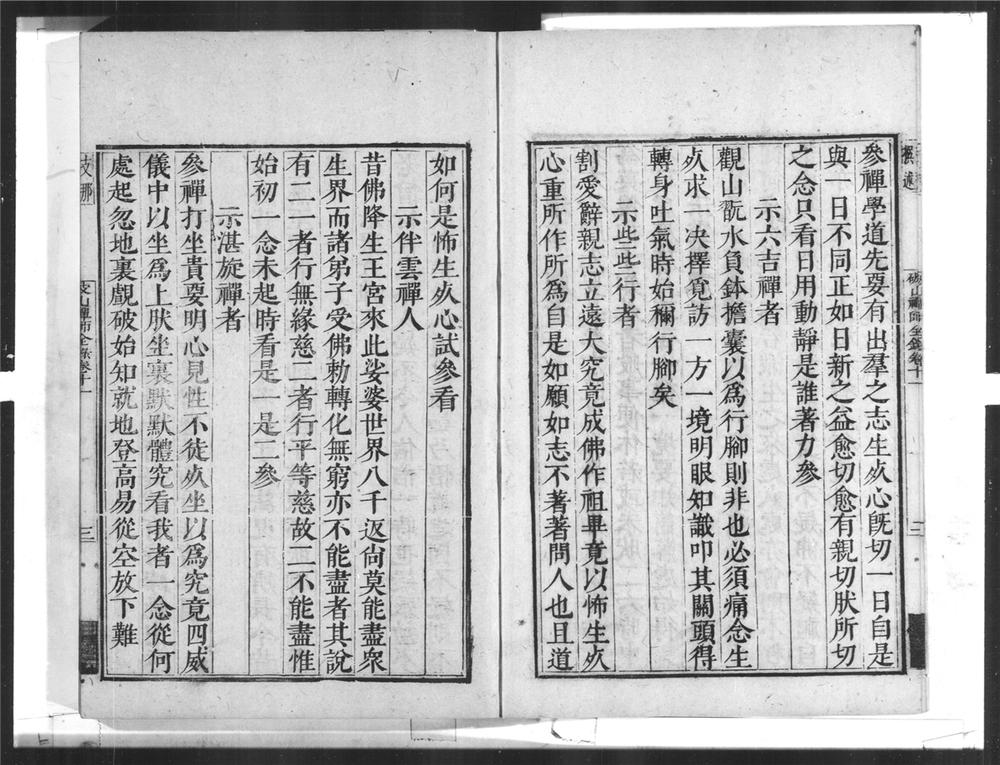 參禪學道先要有出羣之志生死心旣切一日自是
與一日不同正如日新之益愈切愈有親切狀所切
之念只看日用動靜是誰著力參
示六吉禪者
觀山翫水負鉢擔囊以爲行腳則非也必須痛念生
死求一決擇覔訪一方一境明眼知識叩其關頭得
轉身吐氣時始稱行腳矣
示些些行者
割愛辭親志立遠大究竟成佛作祖畢竟以怖生死
心重所作所爲自是如願如志不著著問人也且道
如何是怖生死心試參看
示伴雲禪人
昔佛降生王宮來此娑婆世界八千返尙莫能盡衆
生界而諸弟子受佛勅轉化無窮亦不能盡者其說
有二一者行無緣慈二者行平等慈故二不能盡惟
始初一念未起時看是一是二參
示湛旋禪者
參禪打坐貴要明心見性不徒死坐以爲究竟四威
儀中以坐爲上狀坐裏默默體究看我者一念從何
處起忽地裏覷破始知就地登高易從空放下難
支那
破山禪師全錄卷十一
三
撰述
破山禪師全錄卷十一